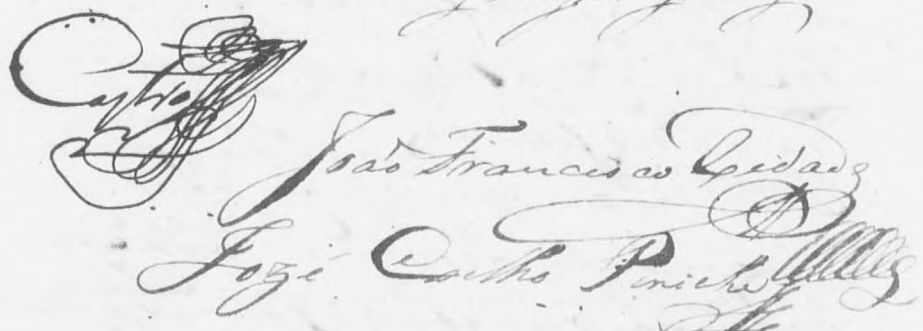 Castro
João Francisco Cidade
Jozé Coelho Piniche